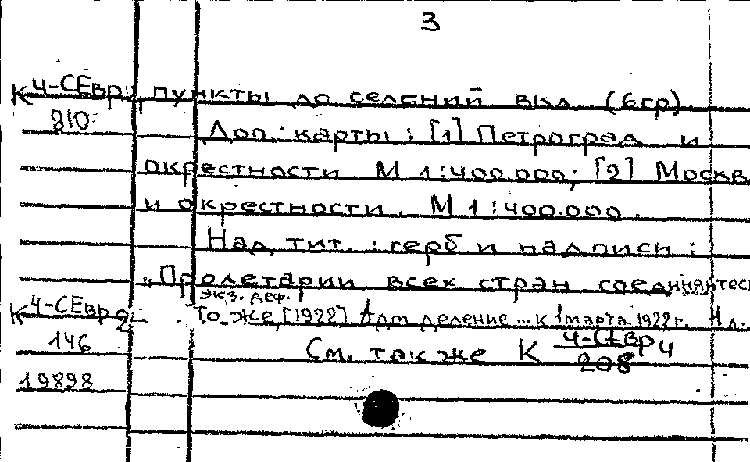 3
К Ч-СЕвр пункты до селений вкл. (6гр).
810
Доп. карты: [1] Петроград и
окрестности М 1:400.000; [2] Москв
и окрестности. М 1:400.000.
Над тит.: герб и надписи:
„Пролетарии всех стран соединяйтесь
экз. деф.
К Ч-СЕвр 2 То же, [1922] Адм деление... к 1 марта 1922 г. 1 л.
146 См. также К Ч-СЕвр 4
208
19898